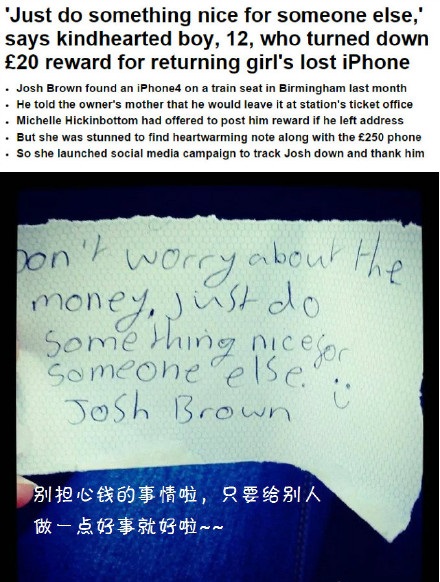 'Just do something nice for someone else,'
says kindhearted boy, 12, who turned down
£20 reward for returning girl's lost iPhone
• Josh Brown found an iPhone4 on a train seat in Birmingham last month
• He told the owner's mother that he would leave it at station's ticket office
• Michelle Hickinbottom had offered to post him reward if he left address
• But she was stunned to find heartwarming note along with the £250 phone
• So she launched social media campaign to track Josh down and thank him
Don't worry about the
money, Just do
something nice for
someone else. :)
Josh Brown
别担心钱的事情啦，只要给别人
做一点好事就好啦~~